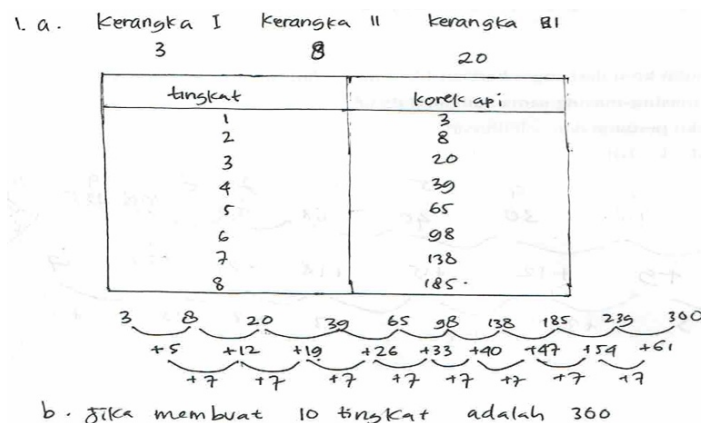 1. a. Kerangka I Kerangka II Kerangka III
3 8 20
tingkat korek api
1 3
2 8
3 20
4 39
5 65
6 98
7 138
8 185.
3 8 20 39 65 98 138 185 239 300
+5 +12 +19 +26 +33 +40 +47 +54 +61
+7 +7 +7 +7 +7 +7 +7 +7
b. Jika membuat 10 tingkat adalah 300